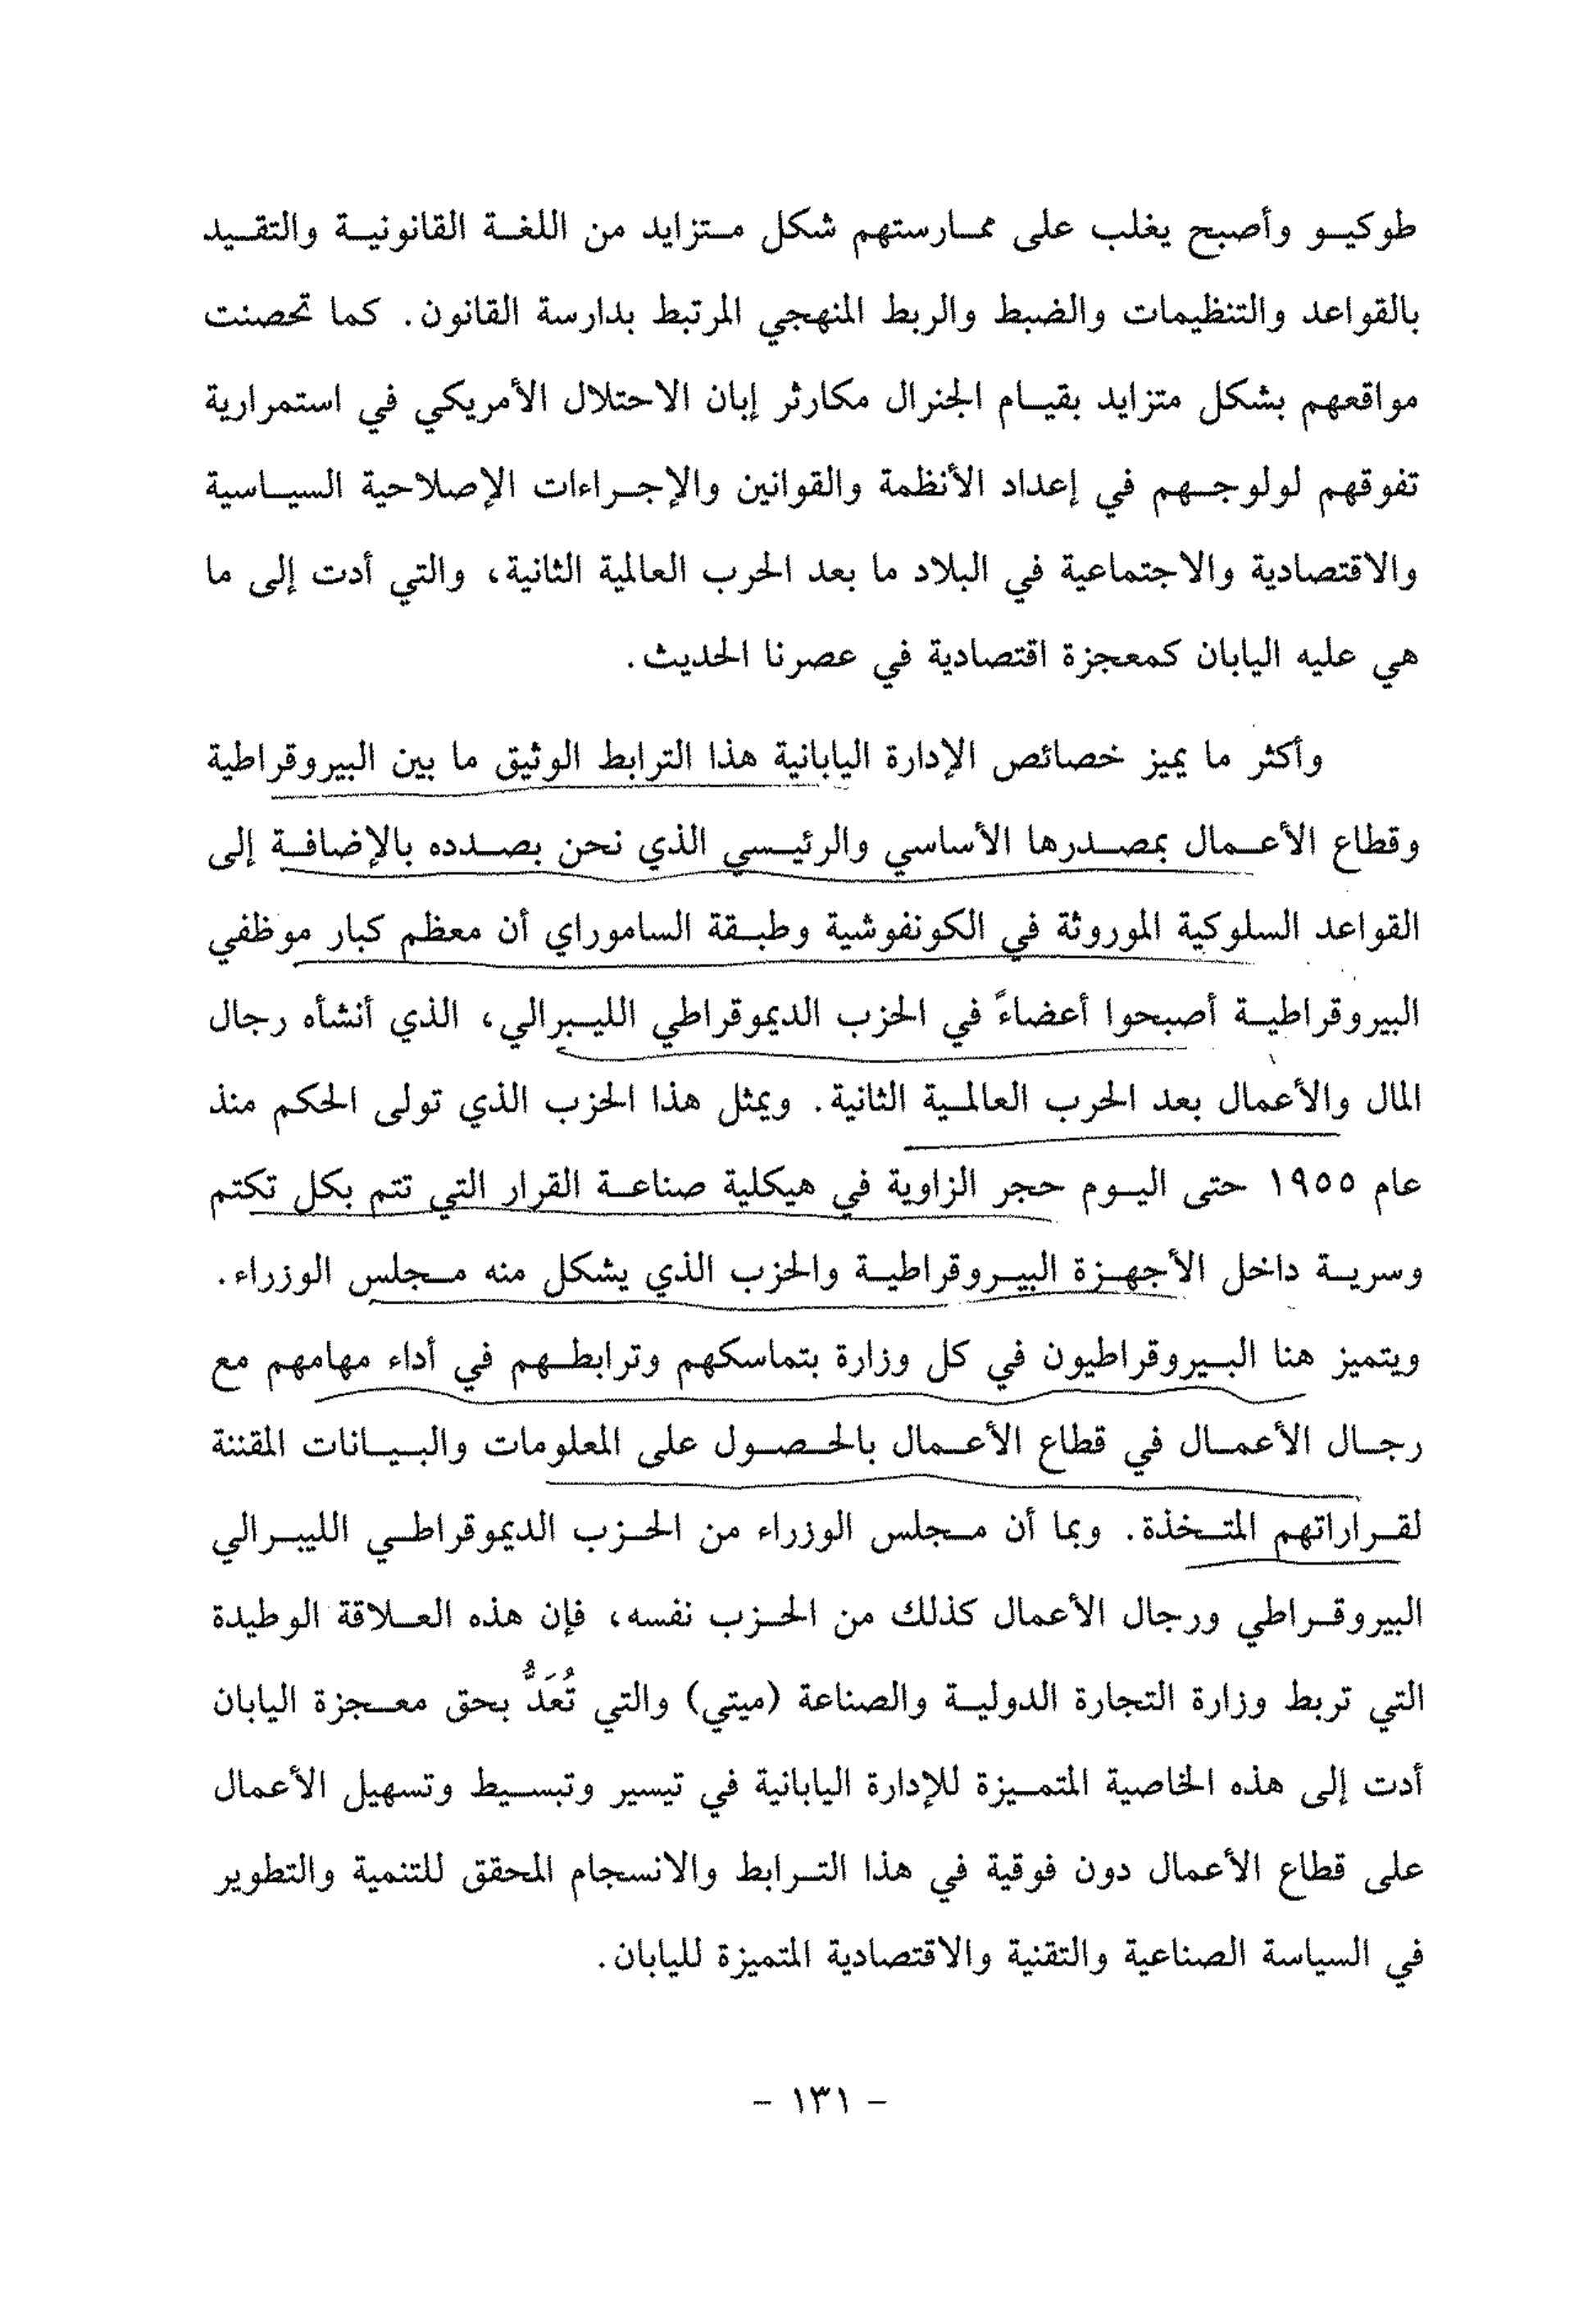 طوكيو وأصبح يغلب على ممارستهم شكل متزايد من اللغة القانونية والتقيد
بالقواعد والتنظيمات والضبط والربط المنهجي المرتبط بدارسة القانون. كما تحصنت
مواقعهم بشكل متزايد بقيام الجنرال مكارثر إبان الاحتلال الأمريكي في استمرارية
تفوقهم لولوجهم في إعداد الأنظمة والقوانين والإجراءات الإصلاحية السياسية
والاقتصادية والاجتماعية في البلاد ما بعد الحرب العالمية الثانية، والتي أدت إلى ما
هي عليه اليابان كمعجزة اقتصادية في عصرنا الحديث.
وأكثر ما يميز خصائص الإدارة اليابانية هذا الترابط الوثيق ما بين البيروقراطية
وقطاع الأعمال بمصدرها الأساسي والرئيسي الذي نحن بصدده بالإضافة إلى
القواعد السلوكية الموروثة في الكونفوشية وطبقة الساموراي أن معظم كبار موظفي
البيروقراطية أصبحوا أعضاءً في الحزب الديموقراطي الليبرالي، الذي أنشأه رجال
المال والأعمال بعد الحرب العالمية الثانية. ويمثل هذا الحزب الذي تولى الحكم منذ
عام ١٩٥٥ حتى اليوم حجر الزاوية في هيكلية صناعة القرار التي تتم بكل تكتم
وسرية داخل الأجهزة البيروقراطية والحزب الذي يشكل منه مجلس الوزراء.
ويتميز هنا البيروقراطيون في كل وزارة بتماسكهم وترابطهم في أداء مهامهم مع
رجال الأعمال في قطاع الأعمال بالحصول على المعلومات والبيانات المقننة
لقراراتهم المتخذة. وبما أن مجلس الوزراء من الحزب الديموقراطي الليبرالي
البيروقراطي ورجال الأعمال كذلك من الحزب نفسه، فإن هذه العلاقة الوطيدة
التي تربط وزارة التجارة الدولية والصناعة (ميتي) والتي تُعَدُّ بحق معجزة اليابان
أدت إلى هذه الخاصية المتميزة للإدارة اليابانية في تيسير وتبسيط وتسهيل الأعمال
على قطاع الأعمال دون فوقية في هذا الترابط والانسجام المحقق للتنمية والتطوير
في السياسة الصناعية والتقنية والاقتصادية المتميزة لليابان.
- ١٣١ -